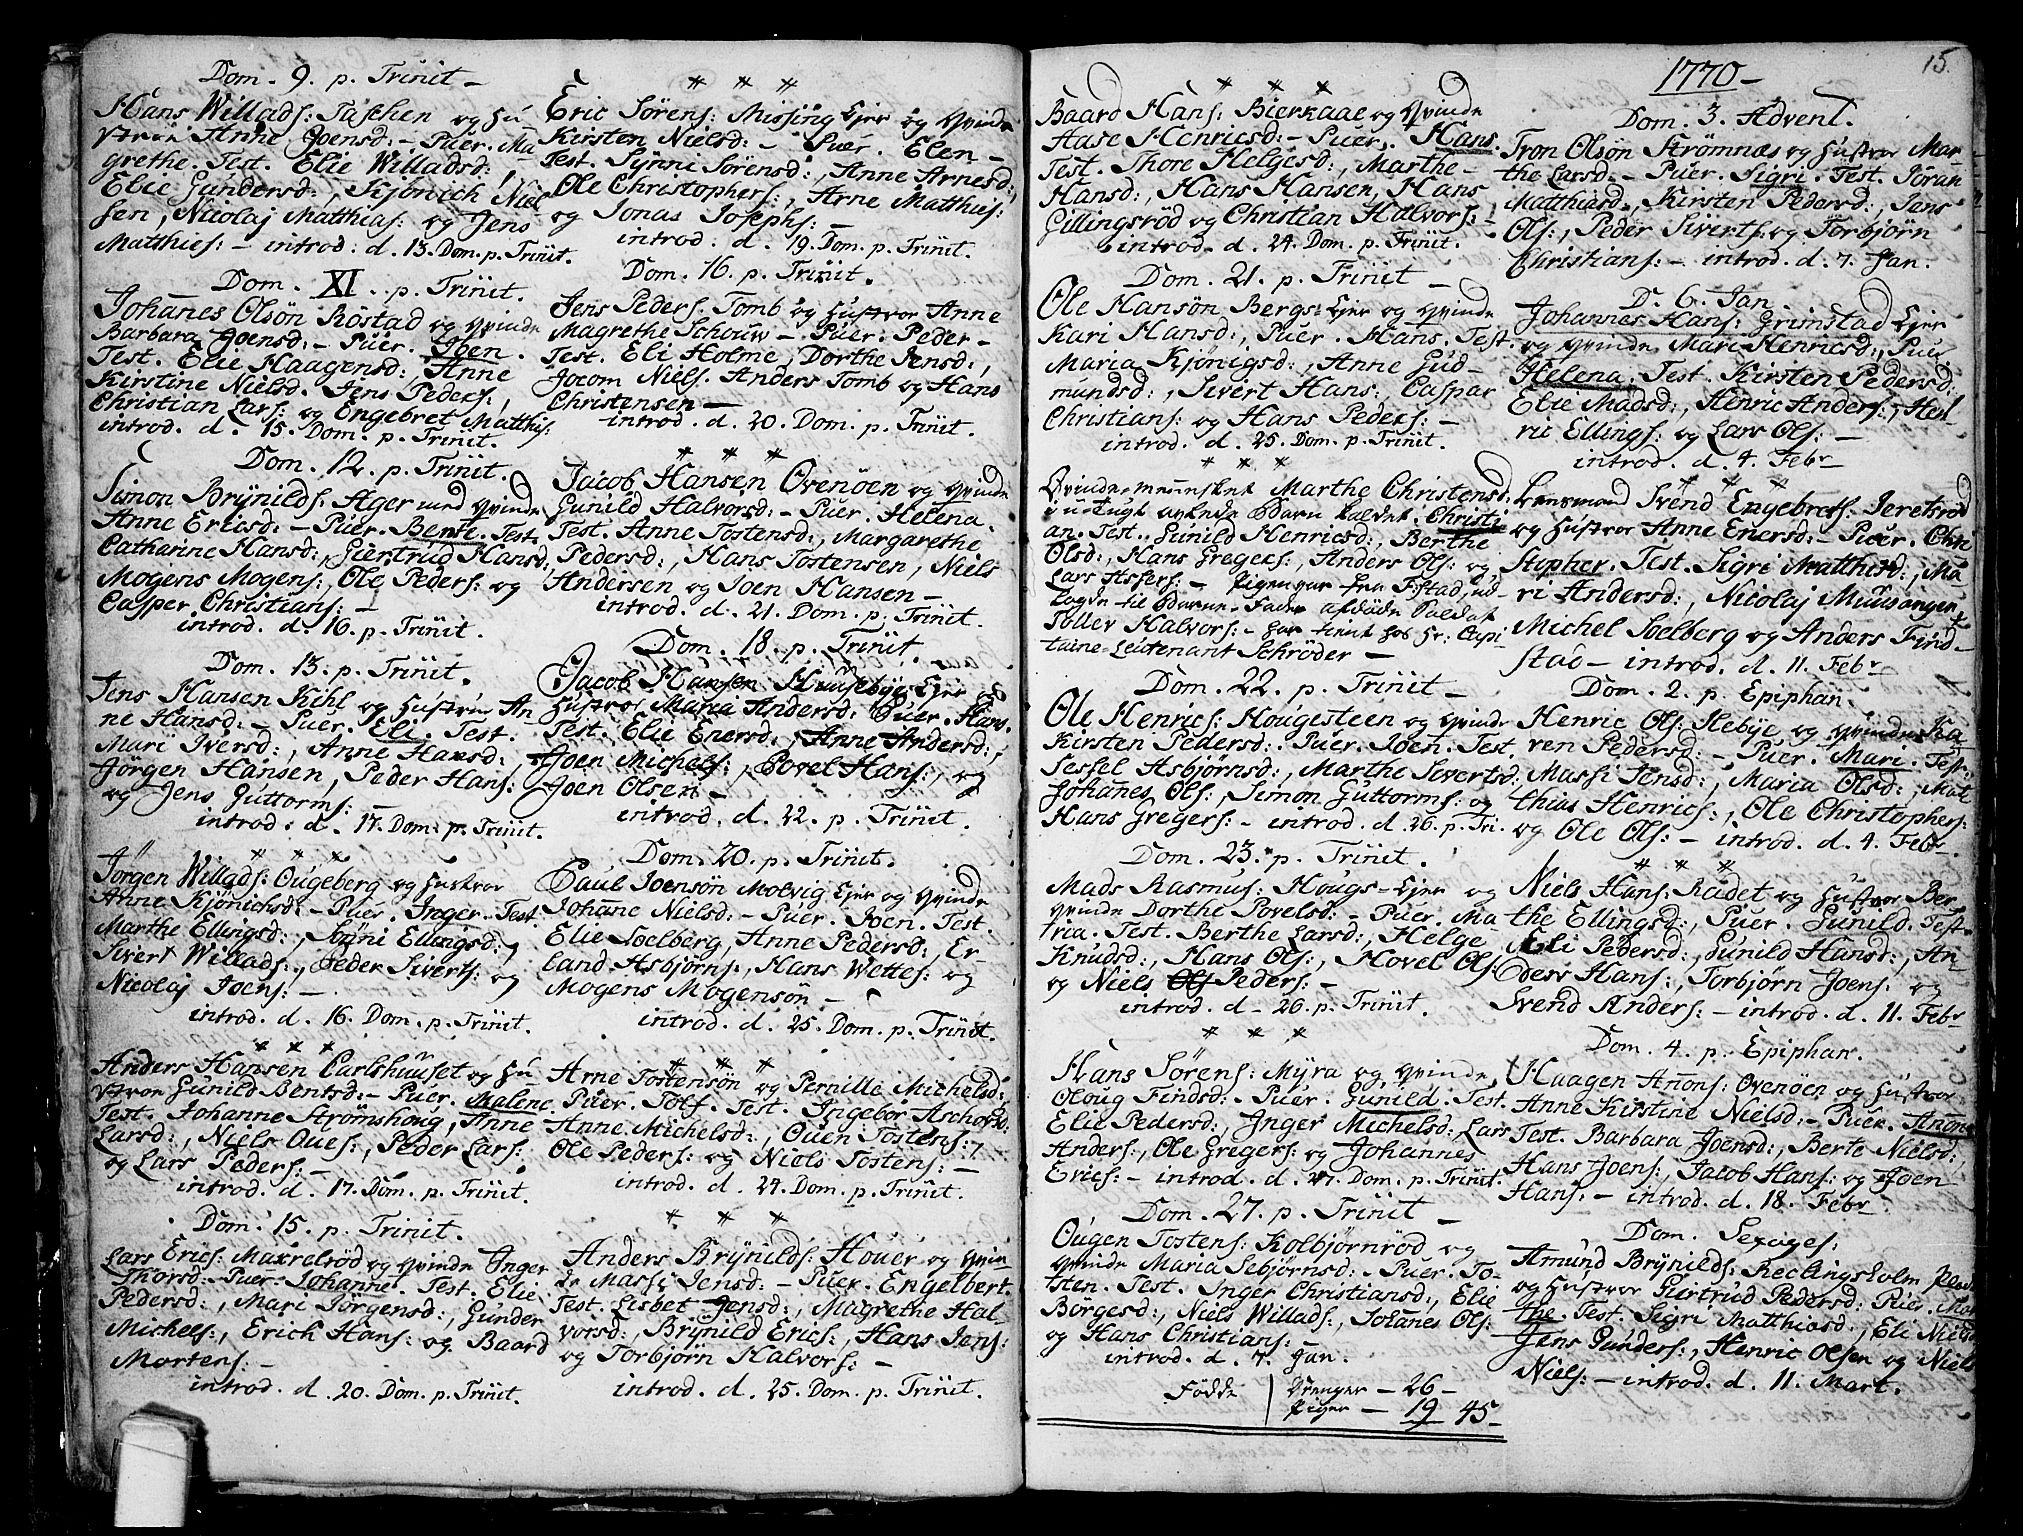 Dom. 9. p. Trinit —
Hans Willads: Taschen og Hu
strue Anne Joensd: — Puer. Ma
grethe. Test. Elie Willadsd:
Elie Gundersd:, Sejbrich Niel
sen, Nicolaj Matthias: og Jens
Matthies: — introd: d. 13. Dom. p. Trinit.
Dom. XI. p. Trinit.
Johannes Olsön Röstad og Qvinde
Barbara Joensd: — Puer. Joen.
Test. Elie Haagensd:, Anne
Kirstine Nielsd. Jens Peders:,
Christian Lars: og Engebret Matthis:
introd. d. 15. Dom. p. Trinit.
Dom. 12. p. Trinit.
Simon Brynilds: Ager med Qvinde
Anne Ericsd: — Puer. Bente. Test.
Catharine Hansd:, Giertrud Hansd:,
Mogens Mogens:, Ole Peders: og
Casper Christians: —
introd. d. 16. p. Trinit.
Dom. 13. p. Trinit.
Jens Hansen Kihl og Hustrue An
ne Hansd: — Puer. Eli. Test.
Mari Iversd:, Anne Hansd:,
Jörgen Hansen, Peder Hans:
og Jens Guttorms: —
introd: d. 17. Dom. p. Trinit.
* * *
Jörgen Willads: Ougeberg og Hustrue
Anne Kjönichsd: — Puer. Inger. Test.
Marthe Ellingsd:, Synni Ellingsd:,
Sivert Willads:, Peder Siverts: og
Nicolaj Joens: —
introd. d. 16. Dom. p. Trinit.
* * *
Anders Hansen Carlshuuset og Hu
strue Gunild Bentsd: — Puer. Malene.
Test. Johanne Strömshoug, Anne
Larsd:, Niels Oues:, Peder Lars:
og Lars Peders: —
introd. d. 17. Dom. p. Trinit.
Dom. 15. p. Trinit.
Lars Erics: Maxrelröd og Qvinde Inger
Thorsd: — Puer. Johanne. Test. Elie
Pedersd:, Mari Jörgensd:, Gunder
Michels:, Erich Hans: og Baard
Mortens: —
introd. d. 20. Dom. p. Trinit.
* * *
Eric Sörens: Missing Ejer og Qvinde
Kirsten Nielsd: — Puer. Elen —
Test. Synni Sörensd:, Anne Arnesd:,
Ole Christophers:, Arne Matthies:
og Jonas Josephs: —
introd: d. 19. Dom. p. Trinit.
Dom. 16. p. Trinit.
Jens Peders. Tomb og Hustrue Anne
Magrethe Schouw — Puer. Peder —
Test. Eli Holme, Dorthe Jensd:,
Jocom Niels. Anders Tomb og Hans
Christensen —
introd. d. 20. Dom. p. Trinit.
* * *
Jacob Hansen Ovenöen og Qvinde
Gunild Halvorsd: — Puer. Helena.
Test. Anne Tostensd:, Margarethe
Pedersd:, Hans Tostensen, Niels
Andersen og Joen Hansen —
introd. d. 21. Dom. p. Trinit.
Dom. 18. p. Trinit.
Jacob Hansen Huusebye Ejer
Hustrue Maria Andersd: Puer. Hans.
Test. Elie Enersd:, Anne Andersd:,
Joen Michels:, Povel Hans:, og
Joen Olsen —
introd. d. 22. p. Trinit.
Dom. 20. p. Trinit.
Paul Joensön Molvig Ejer og Qvinde
Johanne Nielsd: — Puer. Joen. Test.
Elie Soelberg, Anne Pedersd:, Er
land Asbjörns:, Hans Wettes: og
Mogens Mogensön —
introd. d. 25. Dom. p. Trinit.
* * *
Arne Tostensön og Pernille Michelsd:
Puer. Tolf. Test. Ingebor Aschorsd:
Anne Michelsd:, Ouen Tostens:,
Ole Peders: og Niels Tostens: —
introd. d. 24. Dom. p. Trinit.
* * *
Anders Brynilds: Houer og Qvin
de Massi Jensd: — Puer. Engelbert.
Test. Lisbet Jensd:, Magrethe Hal
vorsd:, Brynild Erics:, Hans Jens:
og Torbjörn Halvors: —
introd. d. 25. Dom. p. Trinit.
* * *
Baard Hans: Bierkaae og Qvinde
Aase Henricsd: — Puer. Hans.
Test. Thore Helgesd:, Marthe
Hansd:, Hans Hansen, Hans
Gillingsröd og Christian Halvors: —
introd. d. 24. Dom. p. Trinit.
Dom. 21. p. Trinit —
Ole Hansön Bergs: Ejer og Qvinde
Kari Hansd:, Puer. Hans. Test.
Maria Kjönigsd:, Anne Gud
mundsd:, Sivert Hans:, Caspar
Christians: og Hans Peders: —
introd. d. 25. Dom. p. Trinit.
* * *
Qvinde-mennisket Marthe Christensd:
uægte Barn kaldet Christi
an. Test. Gunild Henricsd:, Berthe
Olsd:, Hans Gregers:, Anders Ols: og
Lars Asfers: — Pigen var fra Fistad, ud-
lagde til Barne-Fader afdöde Soldat
Toller Halvors: — har tient hos Hr: Capi
taine-Leutenant Schröder —
Dom. 22. p. Trinit —
Ole Henrics: Hougesteen og Qvinde
Kirsten Pedersd: Puer. Joen. Test
Sessel Asbjörnsd:, Marthe Sivertsd:,
Johanes Ols:, Simon Guttorms: og
Hans Gregers: — introd. d. 26. p. Tri.
Dom. 23. p. Trinit.
Mads Rasmus: Hougs-Ejer og
Qvinde Dorthe Povelsd: — Puer. Ma
tria. Test. Berthe Larsd:, Helge
Knudsd:, Hans Ols:, Hovel Ols:
og Niels Ols Peders: —
introd. d. 26. p. Trinit.
* * *
Hans Sörens: Myra og Qvinde
Oloug Findsd: — Puer. Gunild. Test.
Elie Pedersd:, Inger Michelsd: Lars
Anders:, Ole Gregers: og Johannes
Erics: — introd. d. 27. Dom. p. Trinit.
Dom. 27. p. Trinit —
Ougen Tostens: Kolbjörnröd og
Qvinde Maria Sebjörnsd: — Puer. To-
sten. Test. Inger Christiansd:, Elie
Borgesd:, Niels Willads:, Johanes Ols:
og Hans Christians: —
introd. d. 7. Jan.
Födde Drenger — 26 —
Piger — 19 45 —
15.
1770 —
Dom. 3. Advent.
Tron Olsön Strömnæs og Hustrue Mar
the Larsd: — Puer. Sigri. Test. Joran
Matthiasd:, Kirsten Pedersd:, Jens
Ols:, Peder Siverts: og Torbjörn
Christians: — introd. d. 7. Jan.
D. 6. Jan.
Johannes Hans: Grimstad Ejer
og Qvinde Mari Henricsd:, Puer.
Helena. Test. Kirsten Pedersd:
Elie Madsd:, Henric Anders:, Hen
ric Ellings: og Lars Ols: —
introd. d. 4. Febr
* * *
Lensmand Svend Engebrets: Jeretsröd
og Hustrue Anne Enersd: — Puer. Chri
stopher. Test. Sigri Matthisd:, Ma
ri Andersd:, Nicolaj Muusanger,
Michel Soelberg og Anders Find
stad — introd. d. 11. Febr
Dom. 2. p. Epiphan.
Henric Ols: Hebye og Qvinde Ka
ren Pedersd: — Puer. Mari. Test.
Massi Jensd:, Maria Olsd:, Mat
thias Henrics:, Ole Christophers:
og Ole Ols: — introd. d. 4. Febr.
* * *
Niels Hans: Rödet og Hustrue Ber
the Ellingsd:, Puer. Gunild. Test.
Eli Pedersd:, Gunild Hansd:, An
ders Hans:, Torbjörn Joens: og
Svend Anders: — introd. d. 11. Febr
Dom. 4. p. Epiphan.
Haagen Anons: Ovenöen og Hustrue
Anne Kirstine Nielsd: — Puer. Anon.
Test. Barbara Joensd:, Berte Nielsd:,
Hans Joens:, Jacob Hans: og Joen
Hans: — introd. d. 18. Febr
Dom. Sexages:
Amund Brynilds: Reclingsholm
og Hustrue Giertrud Pedersd: Puer. Mar
the. Test. Sigri Matthiasd:, Eli Nielsd:
Jens Gunders:, Henric Olsen og Niels
Niels: — introd. d. 11. Mart.